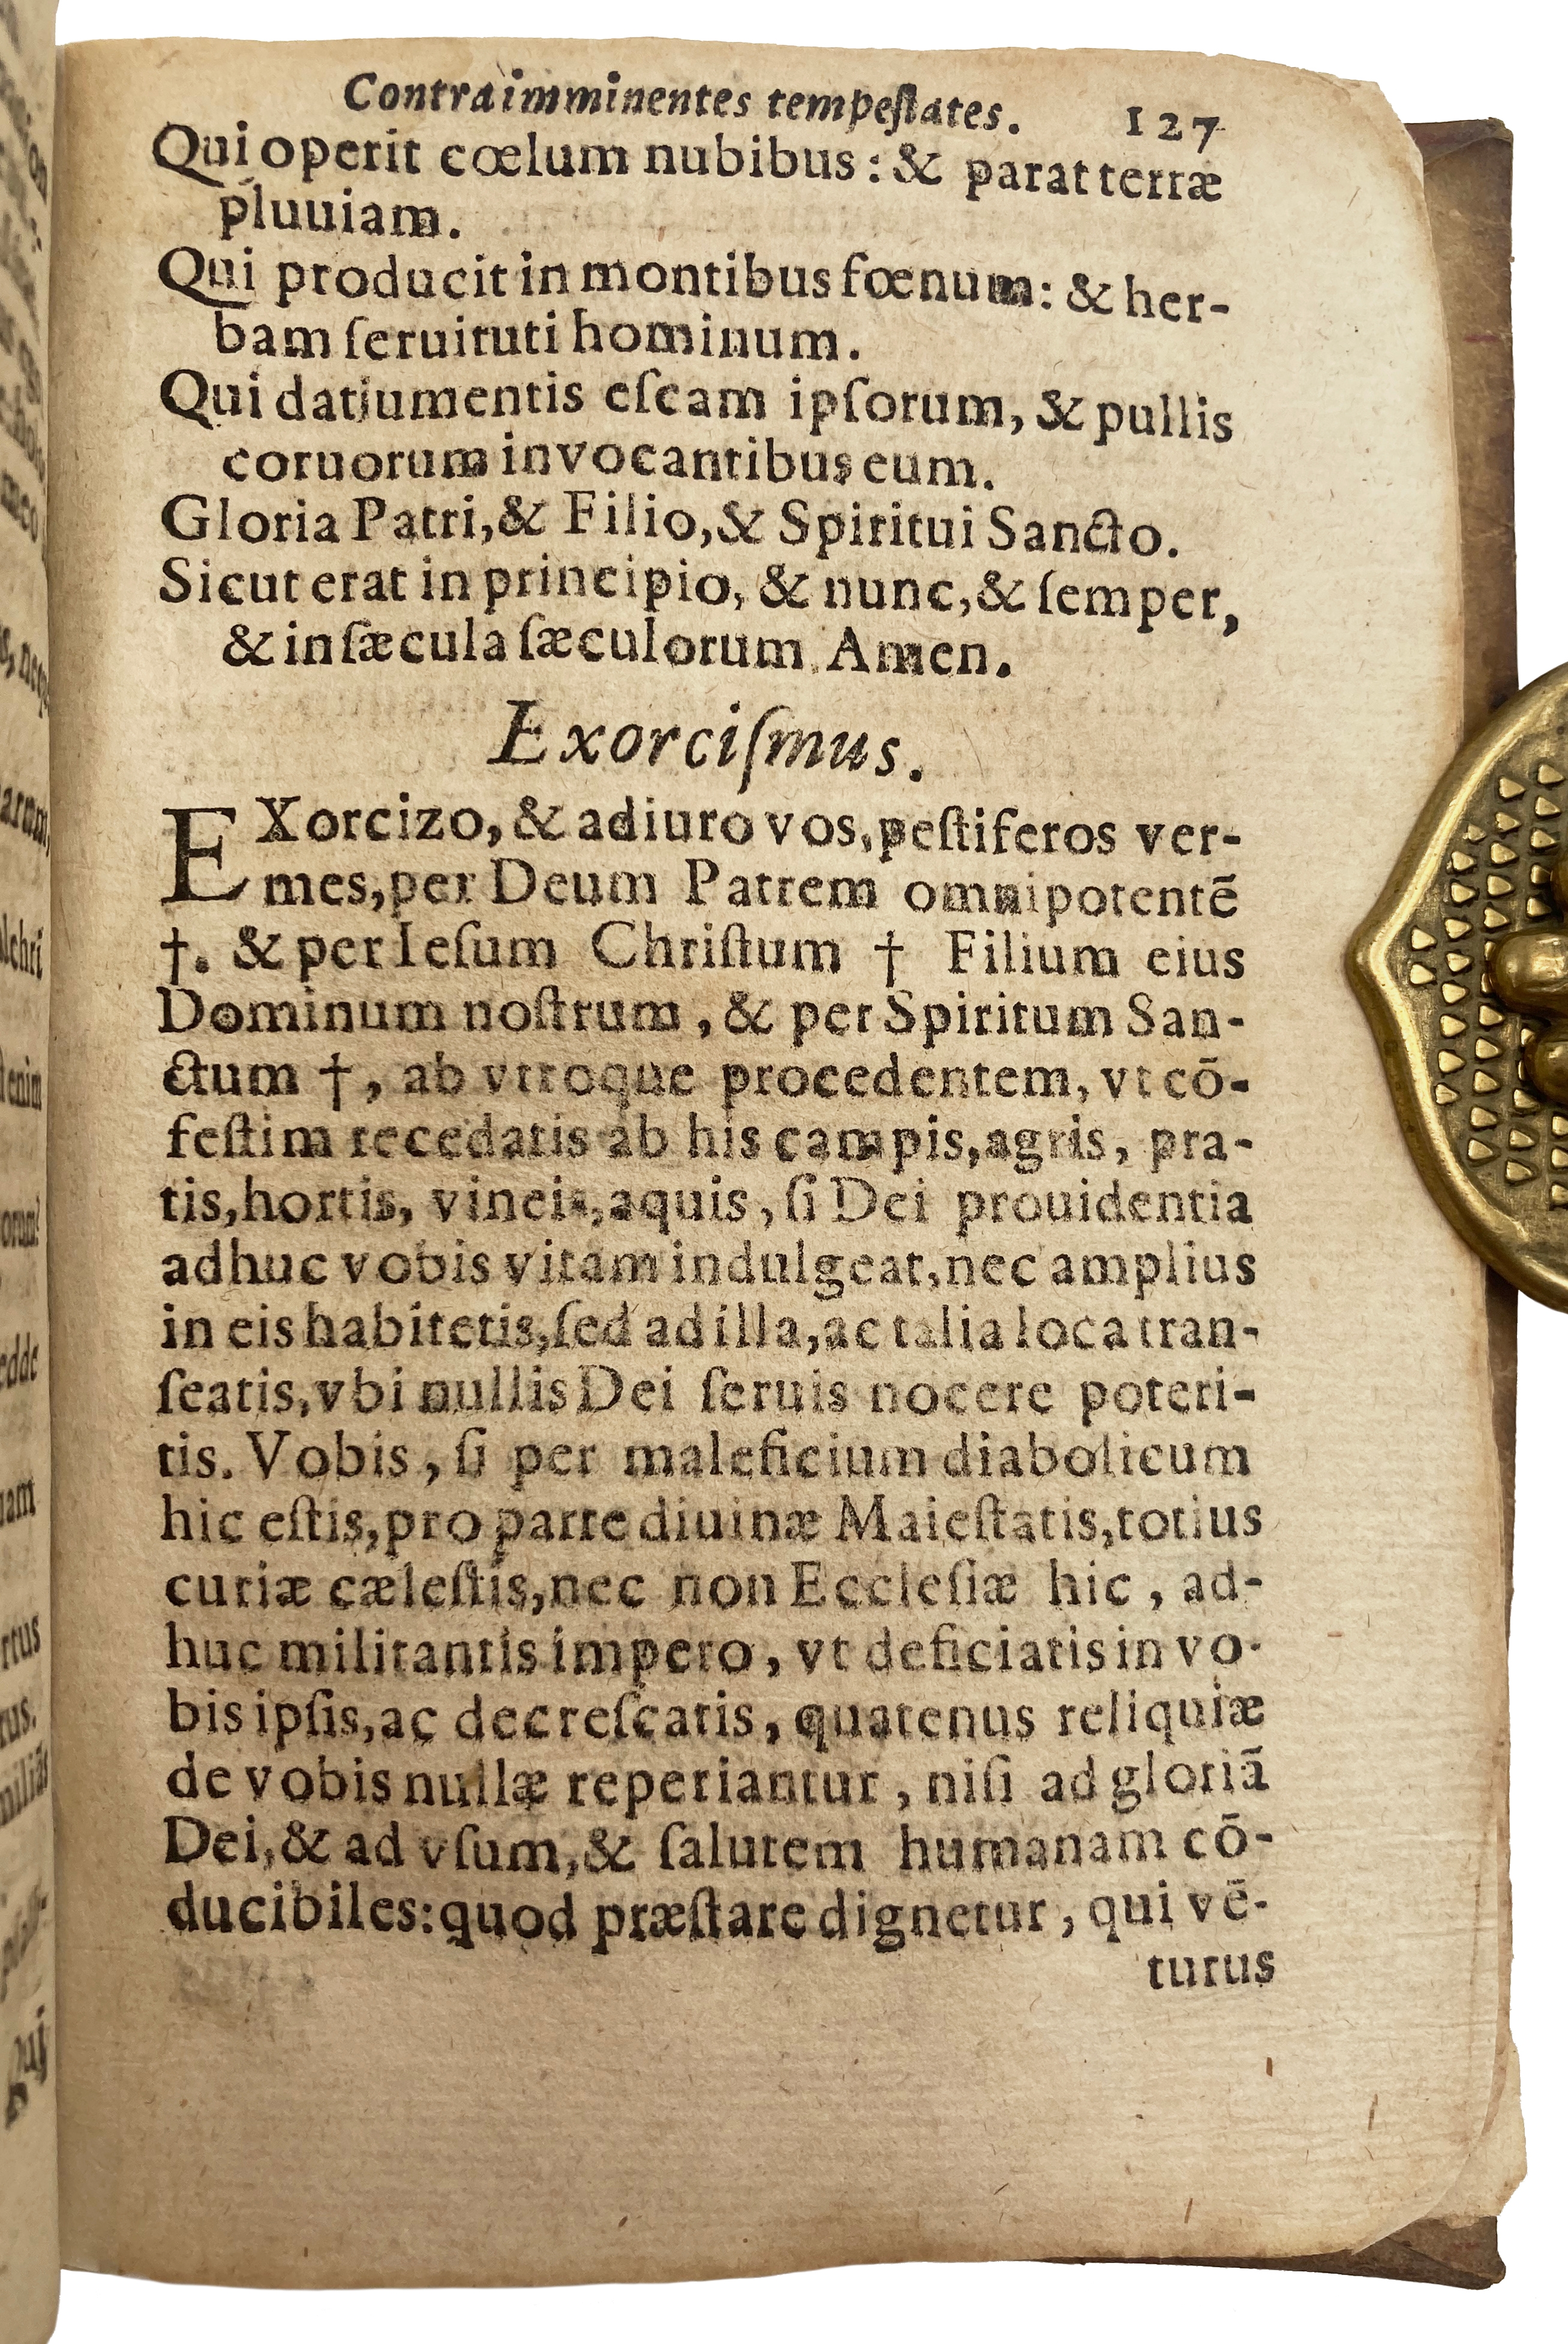 Contra imminentes tempeſtates. 127
Qui operit cœlum nubibus: & parat terræ
pluuiam.
Qui producit in montibus fœnum: & her-
bam ſeruituti hominum.
Qui dat iumentis eſcam ipſorum, & pullis
coruorum invocantibus eum.
Gloria Patri, & Filio, & Spiritui Sancto.
Sicut erat in principio, & nunc, & ſemper,
& in ſæcula ſæculorum. Amen.
Exorciſmus.
EXorcizo, & adiuro vos, peſtiferos ver-
mes, per Deum Patrem omnipotentē
†. & per Ieſum Chriſtum † Filium eius
Dominum noſtrum, & per Spiritum San-
ctum †, ab vtroque procedentem, vt cō-
feſtim recedatis ab his campis, agris, pra-
tis, hortis, vineis, aquis, ſi Dei prouidentia
adhuc vobis vitam indulgeat, nec amplius
in eis habitetis, ſed ad illa, ac talia loca tran-
ſeatis, vbi nullis Dei ſeruis nocere poteri-
tis. Vobis, ſi per maleficium diabolicum
hic eſtis, pro parte diuinæ Maieſtatis, totius
curiæ cæleſtis, nec non Eccleſiæ hic, ad-
huc militantis impero, vt deficiatis in vo-
bis ipſis, ac decreſcatis, quatenus reliquiæ
de vobis nullæ reperiantur, niſi ad gloriã
Dei, & ad vſum, & ſalutem humanam cō-
ducibiles: quod præſtare dignetur, qui vē-
turus